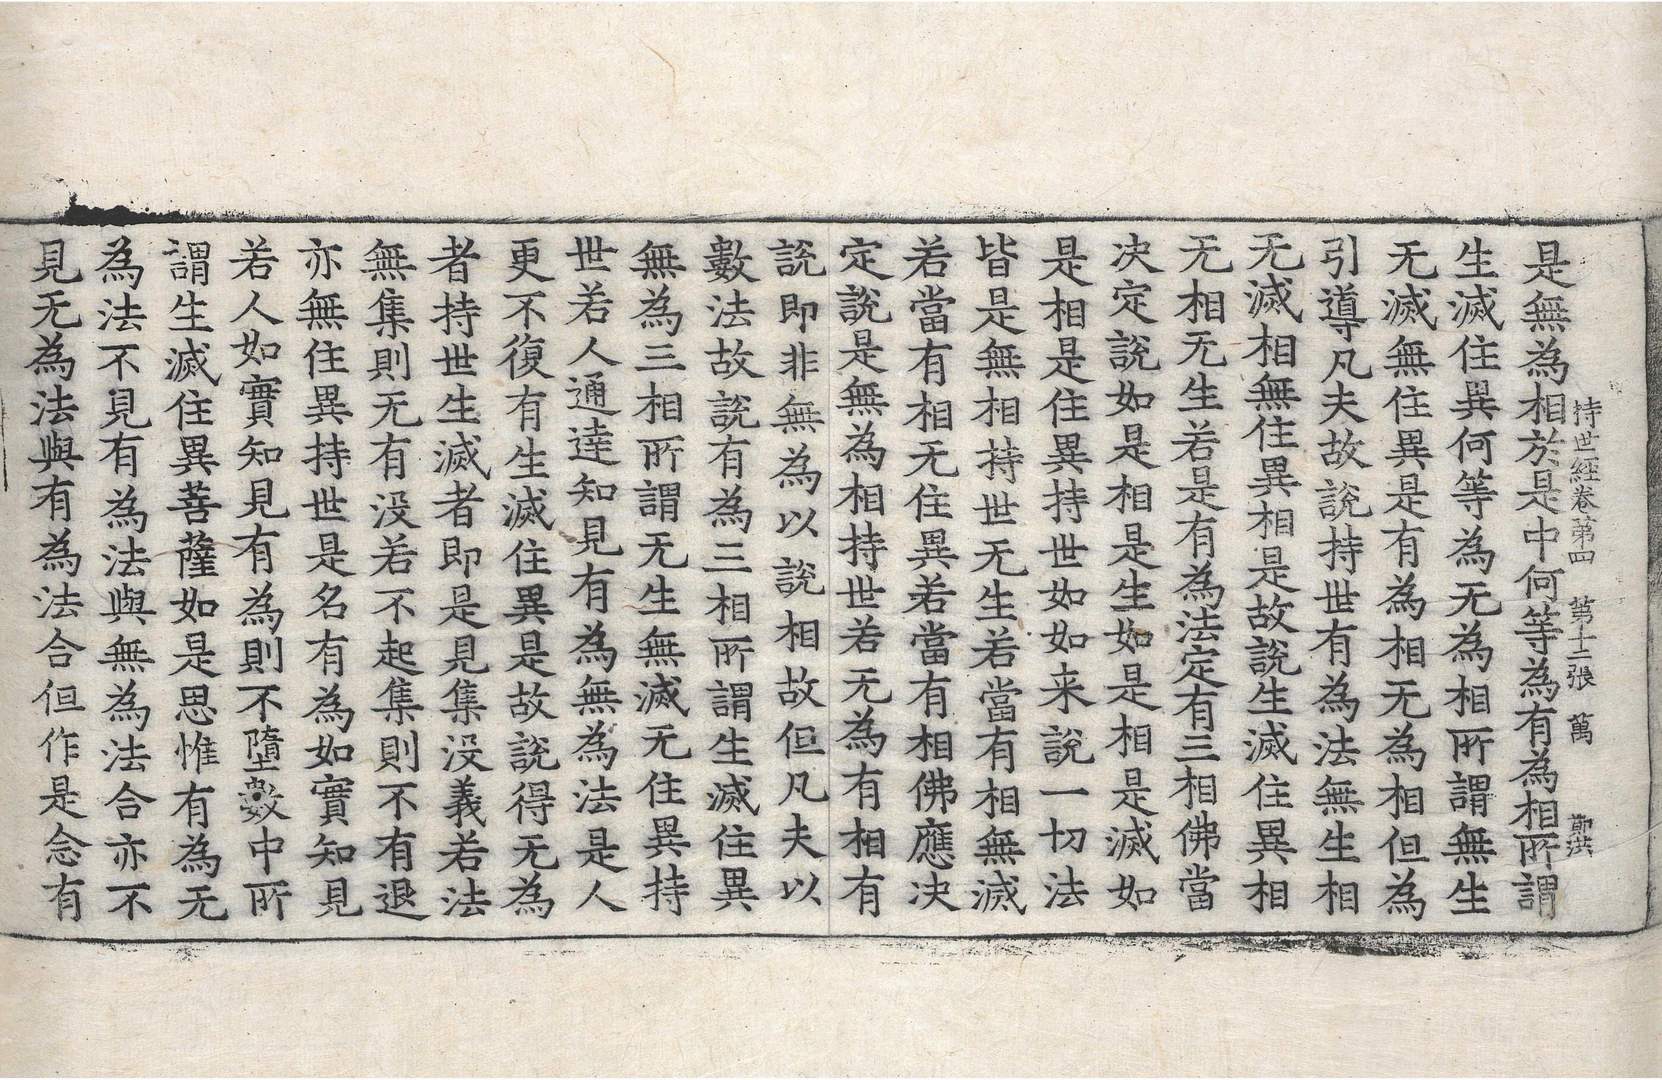 持世經卷第四　第十二張　萬　鄭洪
是無為相於是中何等為有為相所謂
生滅住異何等為无為相所謂無生
无滅無住異是有為相无為相但為
引導凡夫故說持世有為法無生相
无滅相無住異相是故說生滅住異相
无相无生若是有為法定有三相佛當
决定說如是相是生如是相是滅如
是相是住異持世如如来說一切法
皆是無相持世无生若當有相無滅
若當有相无住異若當有相佛應决
定說是無為相持世若无為有相有
說即非無為以說相故但凡夫以
數法故說有為三相所謂生滅住異
無為三相所謂无生無滅无住異持
世若人通達知見有為無為法是人
更不復有生滅住異是故說得无為
者持世生滅者即是見集没義若法
無集則无有没若不起集則不有退
亦無住異持世是名有為如實知見
若人如實知見有為則不墮數中所
謂生滅住異菩薩如是思惟有為无
為法不見有為法與無為法合亦不
見无為法與有為法合但作是念有